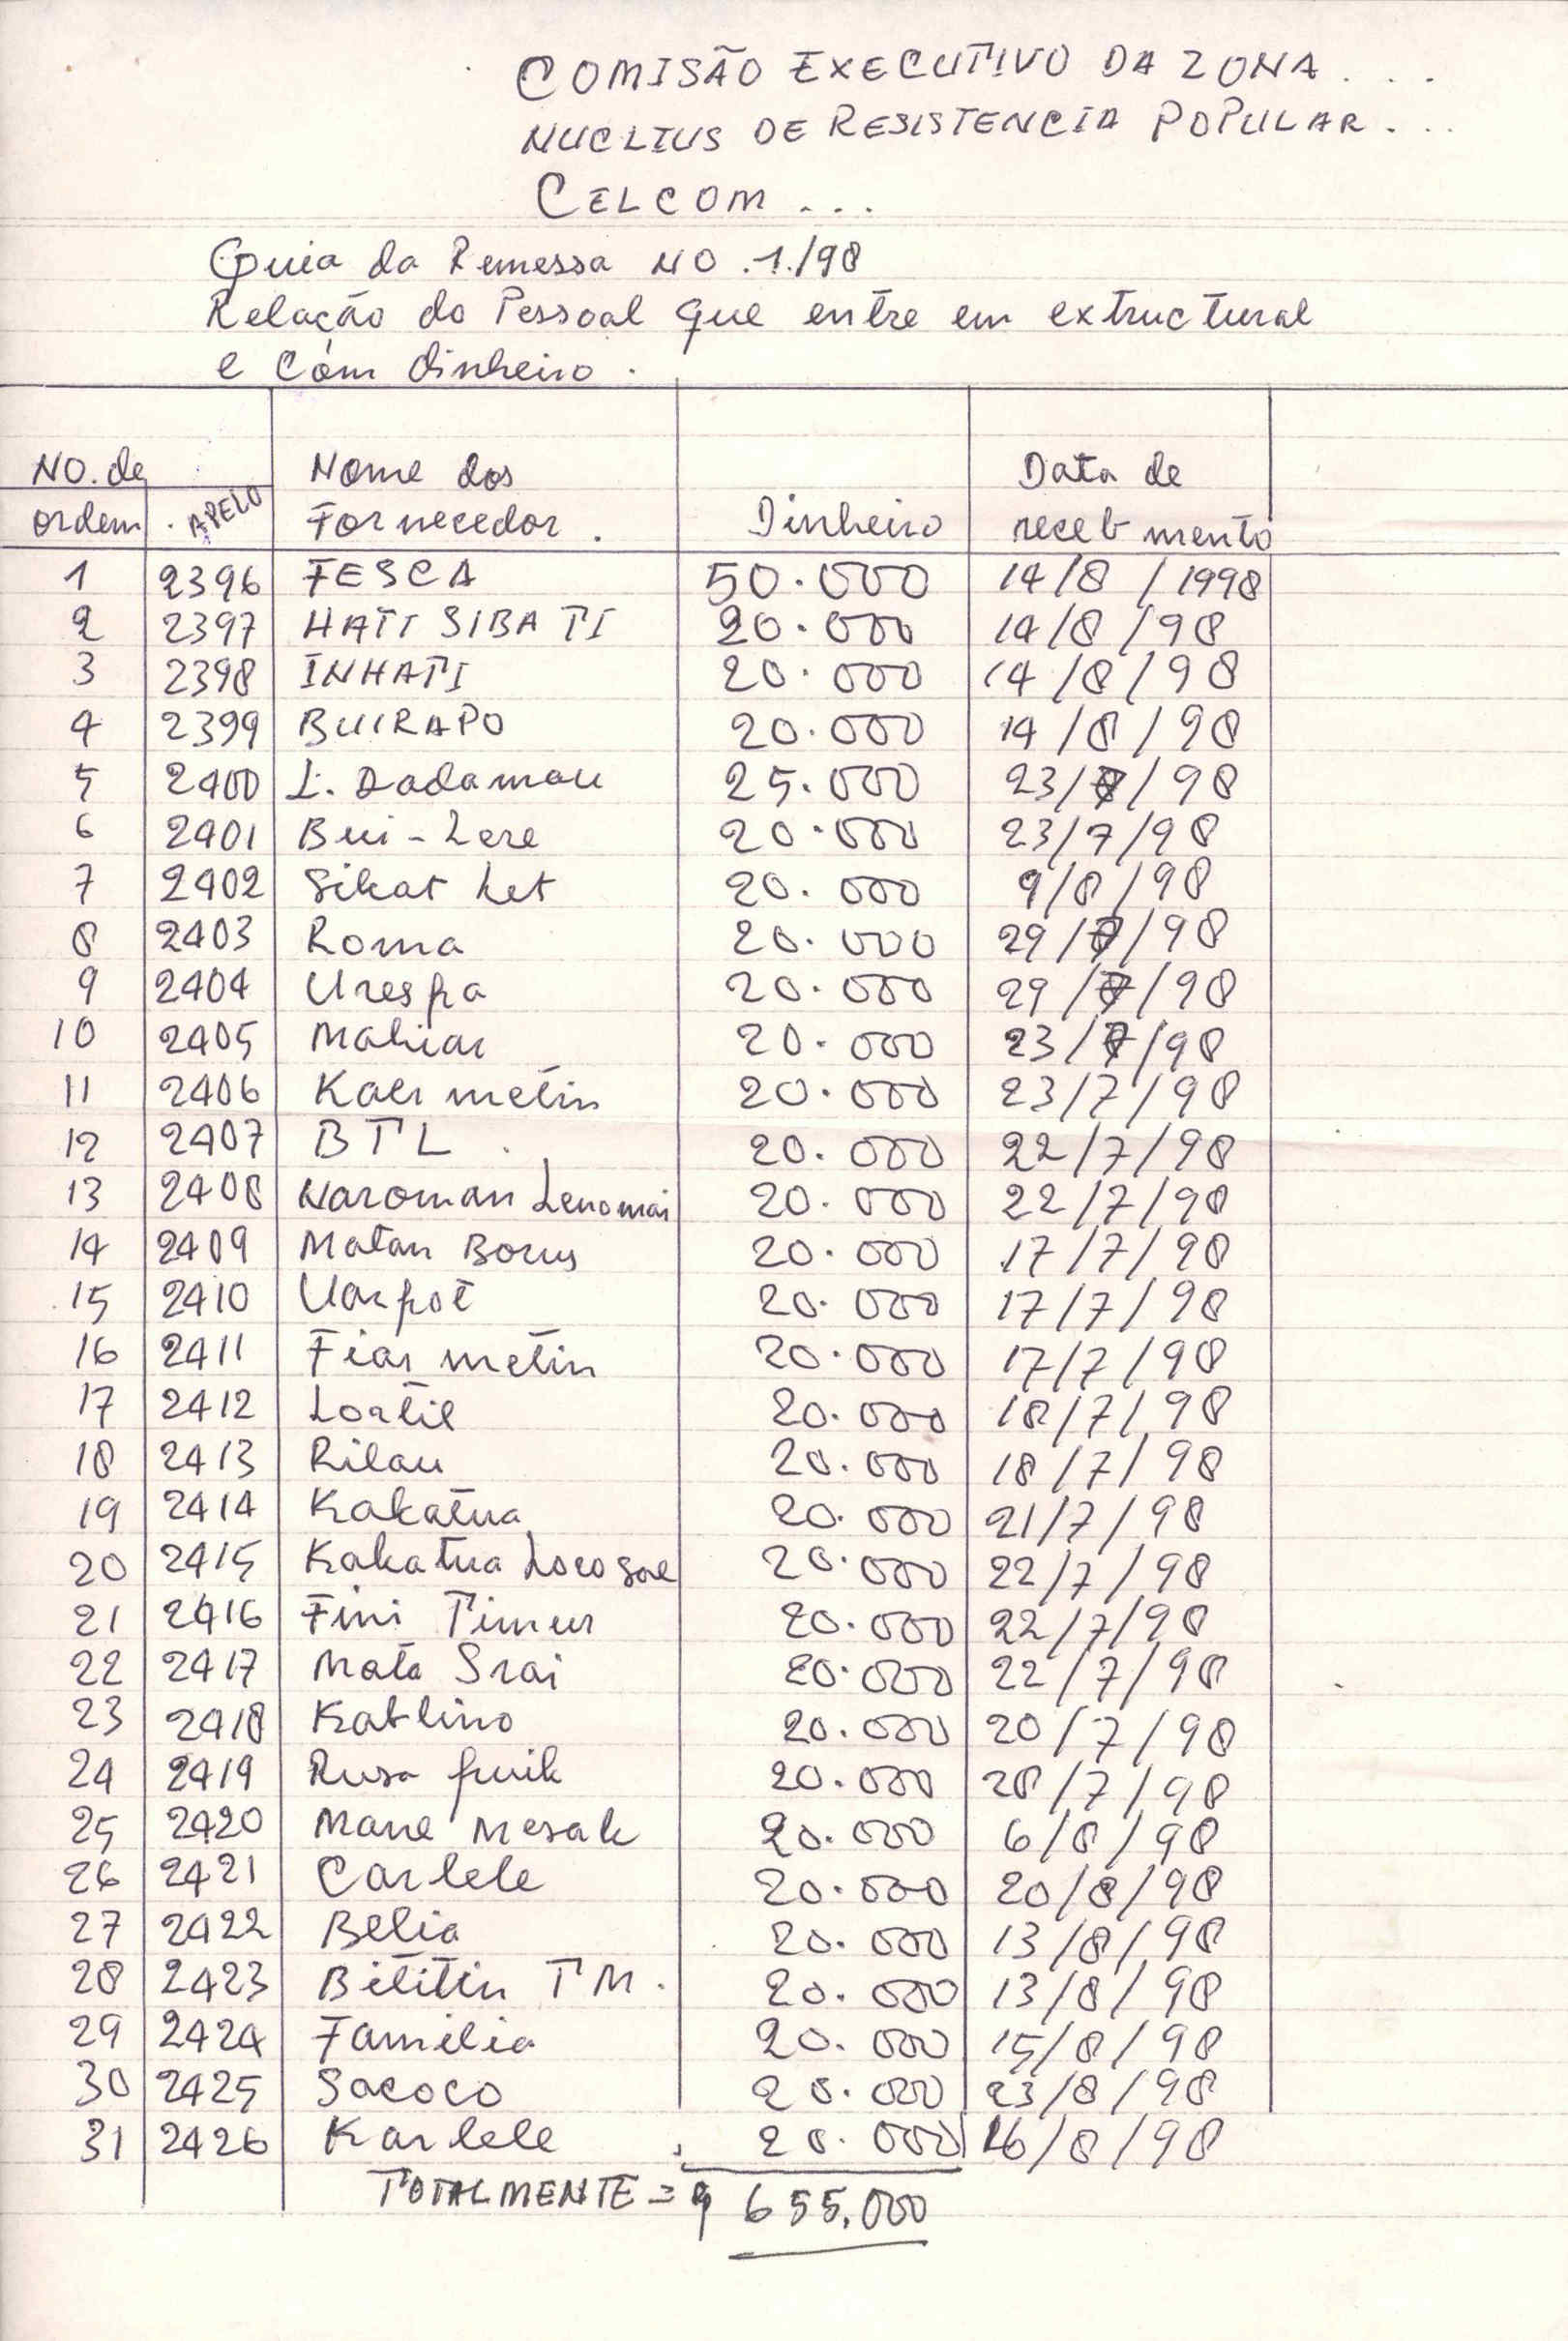 COMISÃO EXECUTIVO DA ZONA . . .
NUCLIUS DE RESISTENCIA POPULAR . . .
CELCOM . . .
Guia da Remessa NO .1./98
Relação do Pessoal que entre em extructural
e com dinheiro .
NO. de ordem APELO Nome dos Fornecedor . Dinheiro Data de recebmento
1 2396 FESCA 50.000 14/8/1998
2 2397 HATI SIBATI 20.000 14/8/98
3 2398 INHATI 20.000 14/8/98
4 2399 BUIRAPO 20.000 14/8/98
5 2400 L. Dadamau 25.000 23/7/98
6 2401 Bui-Lere 20.000 23/7/98
7 2402 Sikat Let 20.000 9/8/98
8 2403 Roma 20.000 29/7/98
9 2404 Urespa 20.000 29/7/98
10 2405 Mahiar 20.000 23/7/98
11 2406 Kaer metin 20.000 23/7/98
12 2407 BTL . 20.000 22/7/98
13 2408 Naroman Lenomai 20.000 22/7/98
14 2409 Matan Borus 20.000 17/7/98
15 2410 Uarpot 20.000 17/7/98
16 2411 Fiar metin 20.000 17/7/98
17 2412 Loatil 20.000 18/7/98
18 2413 Rilau 20.000 18/7/98
19 2414 Kakatua 20.000 21/7/98
20 2415 Kakatua Lorosae 20.000 22/7/98
21 2416 Fini Timur 20.000 22/7/98
22 2417 Mata Srai 20.000 22/7/98
23 2418 Kablino 20.000 20/7/98
24 2419 Rusa fuik 20.000 28/7/98
25 2420 Mane Mesak 20.000 6/8/98
26 2421 Carlele 20.000 20/8/98
27 2422 Belia 20.000 13/8/98
28 2423 Bititin TM . 20.000 13/8/98
29 2424 Familia 20.000 15/8/98
30 2425 Sacoco 20.000 23/8/98
31 2426 Karlele 20.000 16/8/98
TOTALMENTE = 655.000